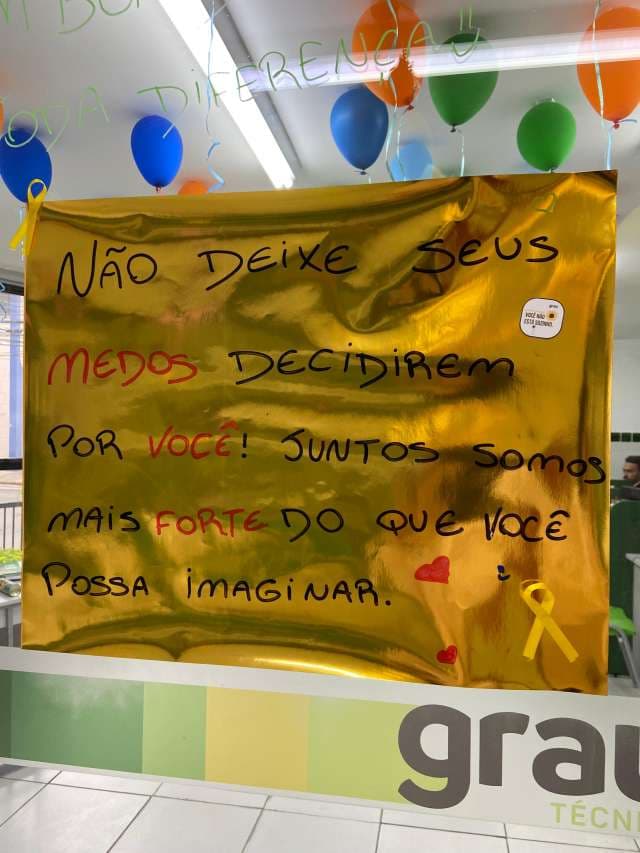 M BO
TODA DIFERENÇA
NÃO DEIXE SEUS
VOCÊ NÃO
ESTÁ SOZINHO.
MEDOS DECIDIREM
POR VOCÊ! JUNTOS SOMOS
MAIS FORTE DO QUE VOCÊ
POSSA IMAGINAR.
grau
TÉCNI